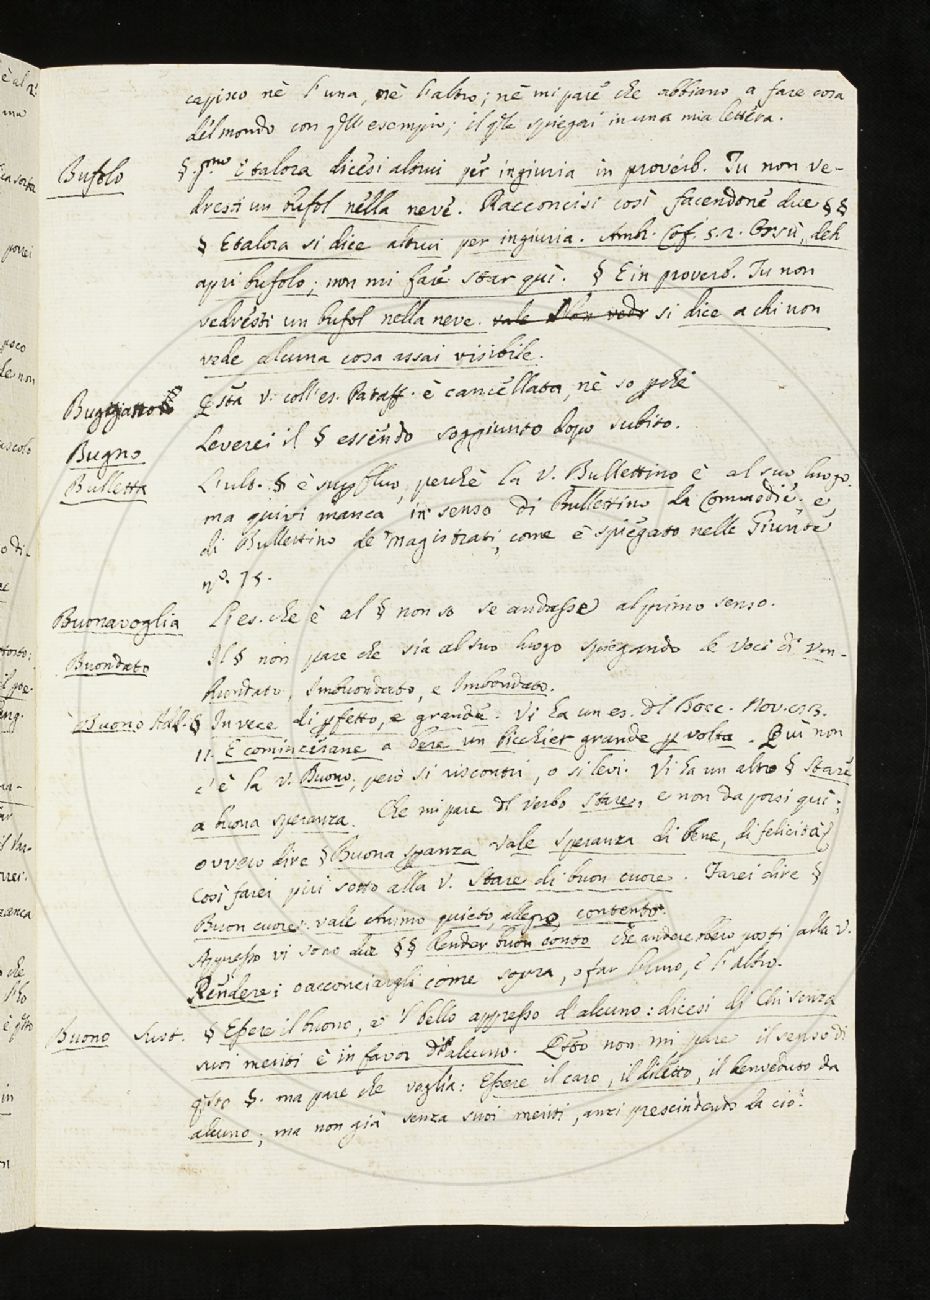 capisco nè l'una, nè l'altro; nè mi pare che abbiano a fare cosa
del mondo con qll'esempio; il qle spiegai in una mia lettera.
Bufolo §. pmo E talora dicesi altrui per ingiuria in proverb. Tu non ve-
dresti un bufol nella neve. Racconcisi così facendone due §§
§ E talora si dice altrui per ingiuria. Amb. Cof. 5. 2. Orsù, deh
apri bufolo; non mi fare star quì. § E in proverb. Tu non
vedresti un bufol nella neve. vale Non vedr si dice a chi non
vede alcuna cosa assai visibile.
Qsta v. coll'es. Pataff. è cancellata, nè so pchè
Bugno Leverei il § essendo soggiunto dopo subito.
Bulletta L'ult. § è supfluo, perchè la V. Bullettino è al suo luogo.
ma quivi manca in senso di Bullettino da Commedie, e
di Bullettino de' Magistrati, come è spiegato nelle Giunte
nº. 75.
Buonavoglia L'es. che è al § non so se andasse al primo senso.
Buondato Il § non pare che sia al suo luogo spiegando le voci di Vin-
buondato, Imbuondato, e Imbondato.
Buono Add. § In vece di pfetto, e grande. Vi ha un es. dl Bocc. Nov.
11. E cominciarne a bere un bicchier grande p volta. Quì non
c'è la v. Buono, però si riscontri, o si levi. Vi ha un altro § Stare
a buona speranza. Che mi pare dl verbo Stare, e non da porsi quì;
ovvero dire § Buona spanza vale speranza di bene, di felicità
Così farei più sotto alla V. Stare di buon cuore. Farei dire §
Buon cuore. vale Animo quieto, allegro, contento.
Appresso vi sono due §§ Render buon conto che anderebbero posti alla V.
Rendere; o acconciargli come sopra, o far l'uno, e l'altro.
Buono Sust. § Essere il buono, e 'l bello appresso d'alcuno: dicesi di Chi senza
suoi meriti è in favor d'alcuno. Qsto non mi pare il senso di
qsto §. ma pare che voglia: Essere il caro, il diletto, il benveduto da
alcuno; ma non già senza suoi meriti, anzi prescindendo da ciò.